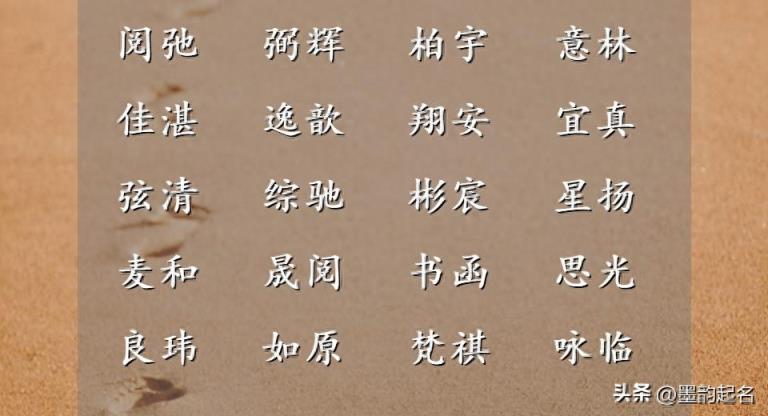 阅弛 弼辉 柏宇 意林
佳湛 逸歆 翔安 宜真
弦清 综驰 彬宸 星扬
麦和 晟阅 书函 思光
良玮 如原 梵祺 咏临
头条 @墨韵起名